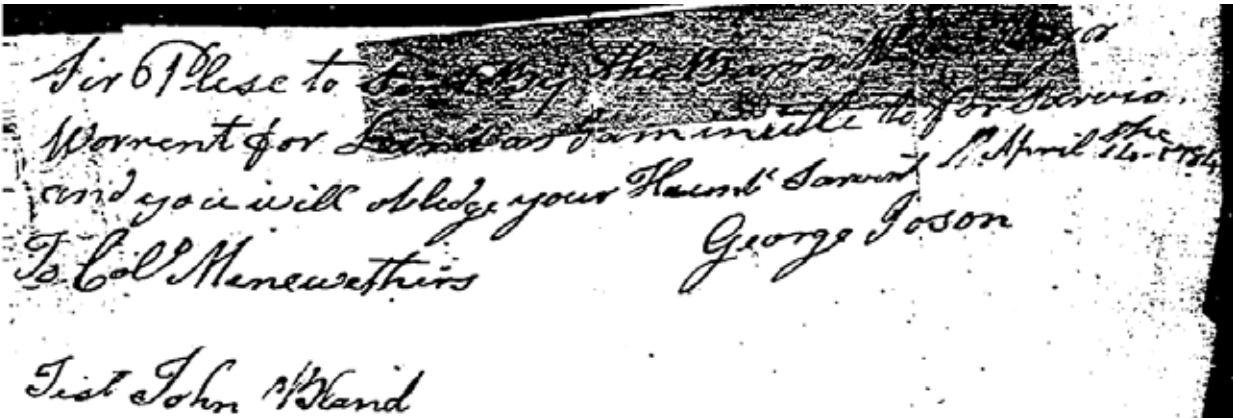 Sir Plese to Send By the Barro
Worrent for Land as I am intitle to for Sarvis
and you will obledge your Humbl Sarvint April the 14 1784
George Joson
To Col Merewethirs
Test John Bland